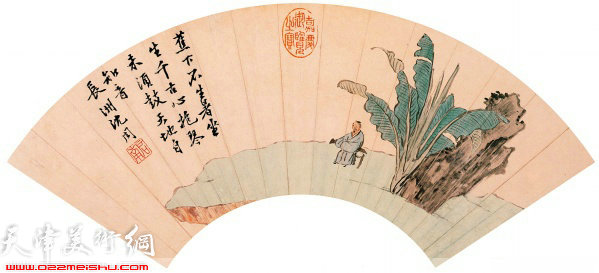 嘉慶御覽之寶
蕉下不生暑坐
生千古心抱琴
未須鼓天地自
知音
長洲沈周
天津美術網
www.022meishu.com